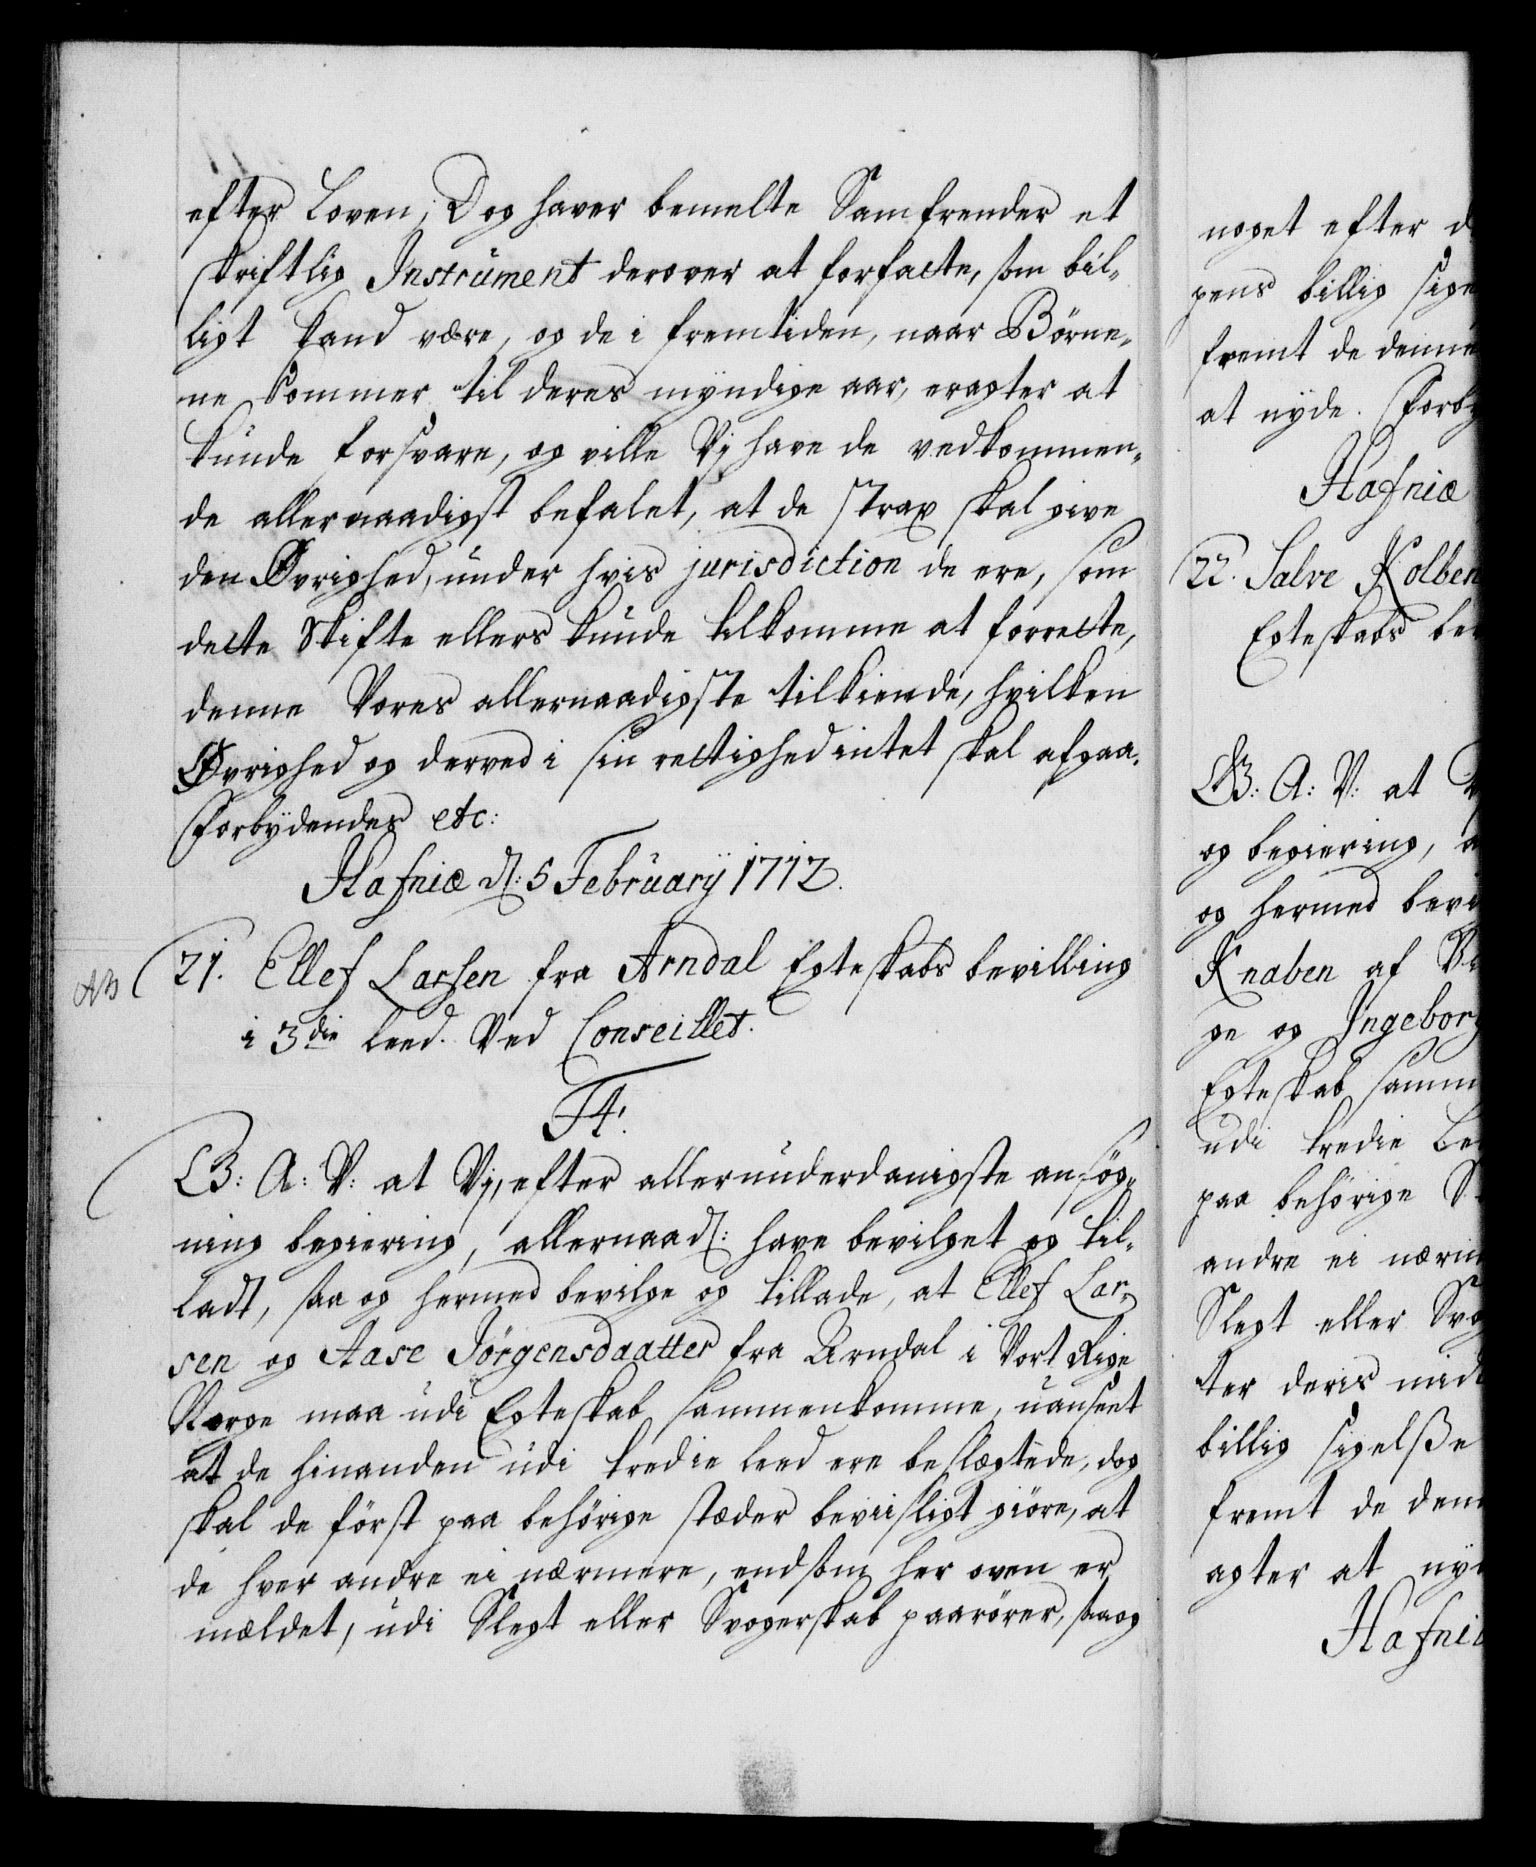 efter Loven; Dog haver bemelte Samfrender et
skriftlig Instrument derover at forfatte, som bil-
ligt kand være, og de i fremtiden, naar Børne-
ne kommer til deres myndige aar, eragter at
kunde forsvare, og ville Vj have de vedkommen-
de allernaadigst befalet, at de strax skal give
den Øvrighed, under hvis jurisdiction de ere, som
dette Skifte ellers kunde tilkomme at forrette,
denne Vores allernaadigste tilkiende, hvilken
Øvrighed og derved i sin rettighed intet skal afgaa.
Forbydendes etc:
Hafniæ d: 5 February 1712.
AB
21. Ellef Larsen fra Arndal Egteskabs bevilling
i 3die Leed. Ved Conseillet.
F4!
G: A: V: at Vj, efter allerunderdanigste ansøg-
ning begiering, allernaad: have bevilget og til-
ladt, saa og hermed bevilge og tillade, at Ellef Lar-
sen og Aase Jörgensdaatter fra Arndal i Vort Rige
Norge maa udi Egteskab sammenkomme, uanseet
at de hinanden udi tredie Leed ere beslægtede, dog
skal de först paa behörige stæder beviisligt giöre, at
de hver andre ei nærmere, end som her oven er
mældet, udi Slegt eller Svogerskab paarörer, saa og
noget efter d
pens billig sige
fremt de denne
at nyde. Forby
Hafniæ
22. Salve Kolben
Egteskabs be
G: A: V: at V
og begiering, a
og hermed bevi
Knaben af
ge og Ingeborg
Egteskab samm
udi tredie Le
paa behörige S
andre ei nærm
Slegt eller Svog
ter deris mid
billig sigelße
fremt de den
agter at ny
Hafni